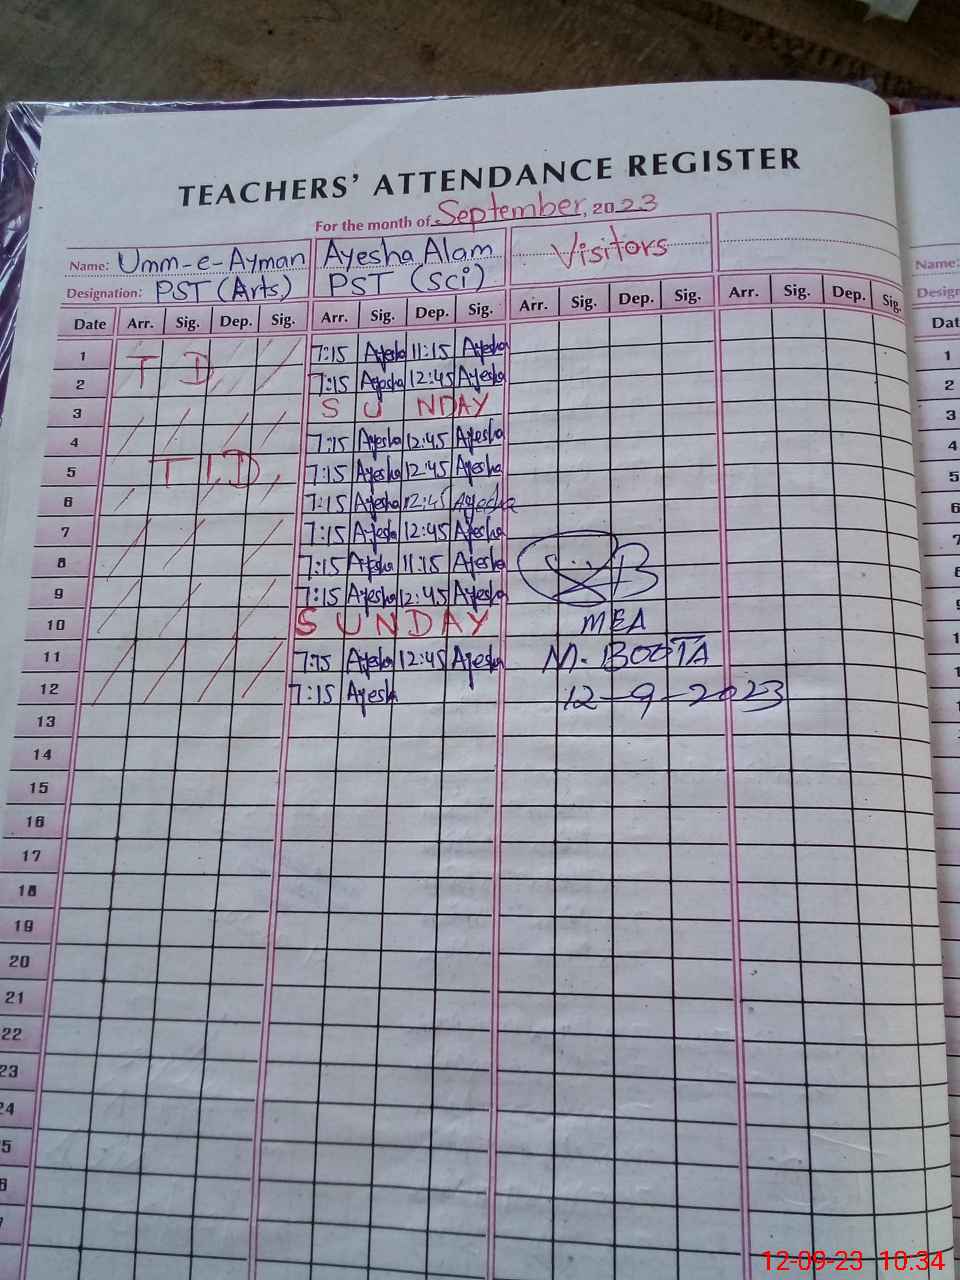 TEACHERS' ATTENDANCE REGISTER
For the month of September, 2023
Name: Umm-e-Ayman Ayesha Alam Visitors
Designation: PST (Arts) PST (Sci)
Date Arr. Sig. Dep. Sig. Arr. Sig. Dep. Sig. Arr. Sig. Dep. Sig. Arr. Sig. Dep. Sig.
1 T D 7:15 Ayesha 11:15 Ayesha
2 7:15 Ayesha 12:45 Ayesha
3 SUNDAY
4 7:15 Ayesha 12:45 Ayesha
5 T.D 7:15 Ayesha 12:45 Ayesha
6 7:15 Ayesha 12:45 Ayesha
7 7:15 Ayesha 12:45 Ayesha
8 7:15 Ayesha 11:15 Ayesha
9 7:15 Ayesha 12:45 Ayesha
10 SUNDAY MEA
11 7:15 Ayesha 12:45 Ayesha M. BOOTA
12 7:15 Ayesha 12-9-2023
13
14
15
16
17
18
19
20
21
22
23
24
5
Name:
Design
Dat
1
2
3
4
5
6
7
8
9
1
1
1
12-09-23 10:34